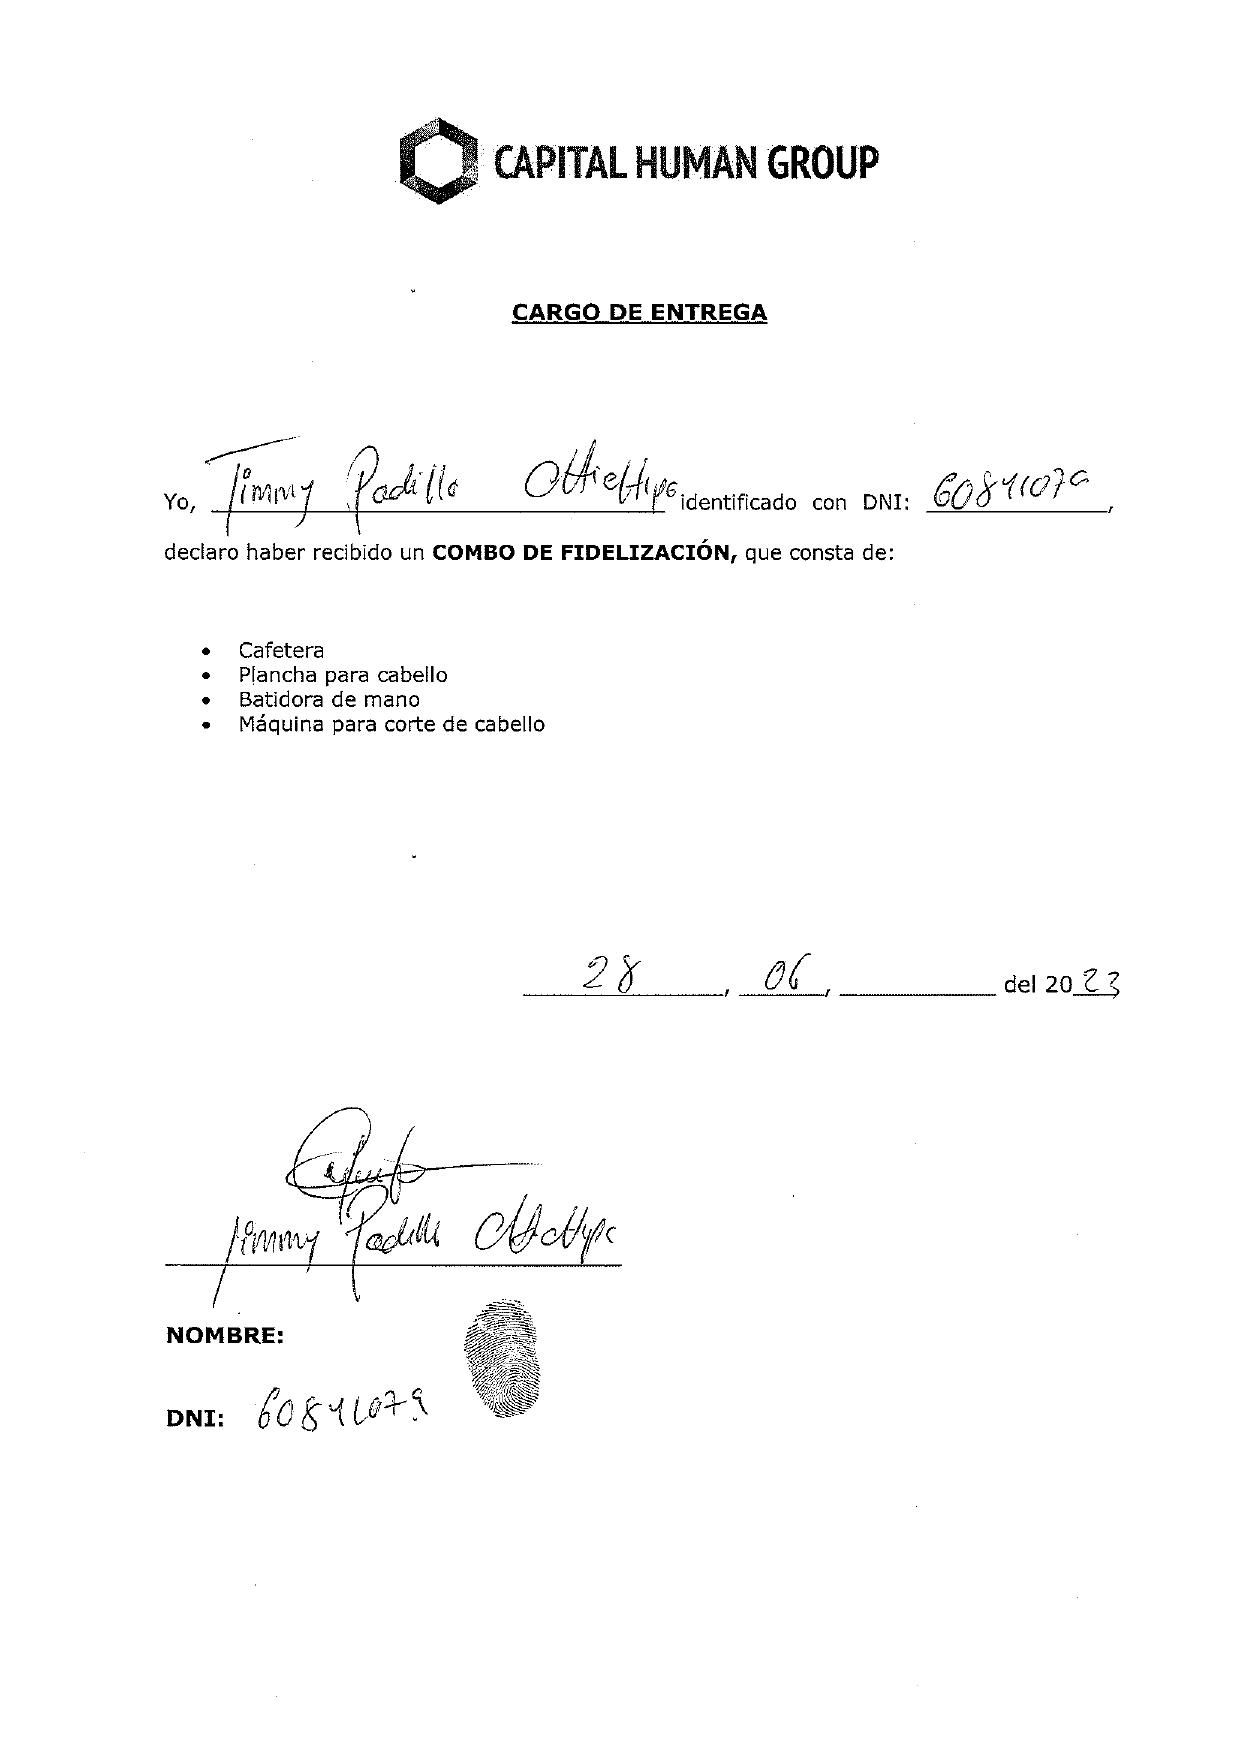 CAPITAL HUMAN GROUP
CARGO DE ENTREGA
Yo, Jimmy Padilla identificado con DNI: 60841079,
declaro haber recibido un COMBO DE FIDELIZACIÓN, que consta de:
• Cafetera
• Plancha para cabello
• Batidora de mano
• Máquina para corte de cabello
28, 06, del 2023
Jimmy Padilla
NOMBRE:
DNI: 60841079